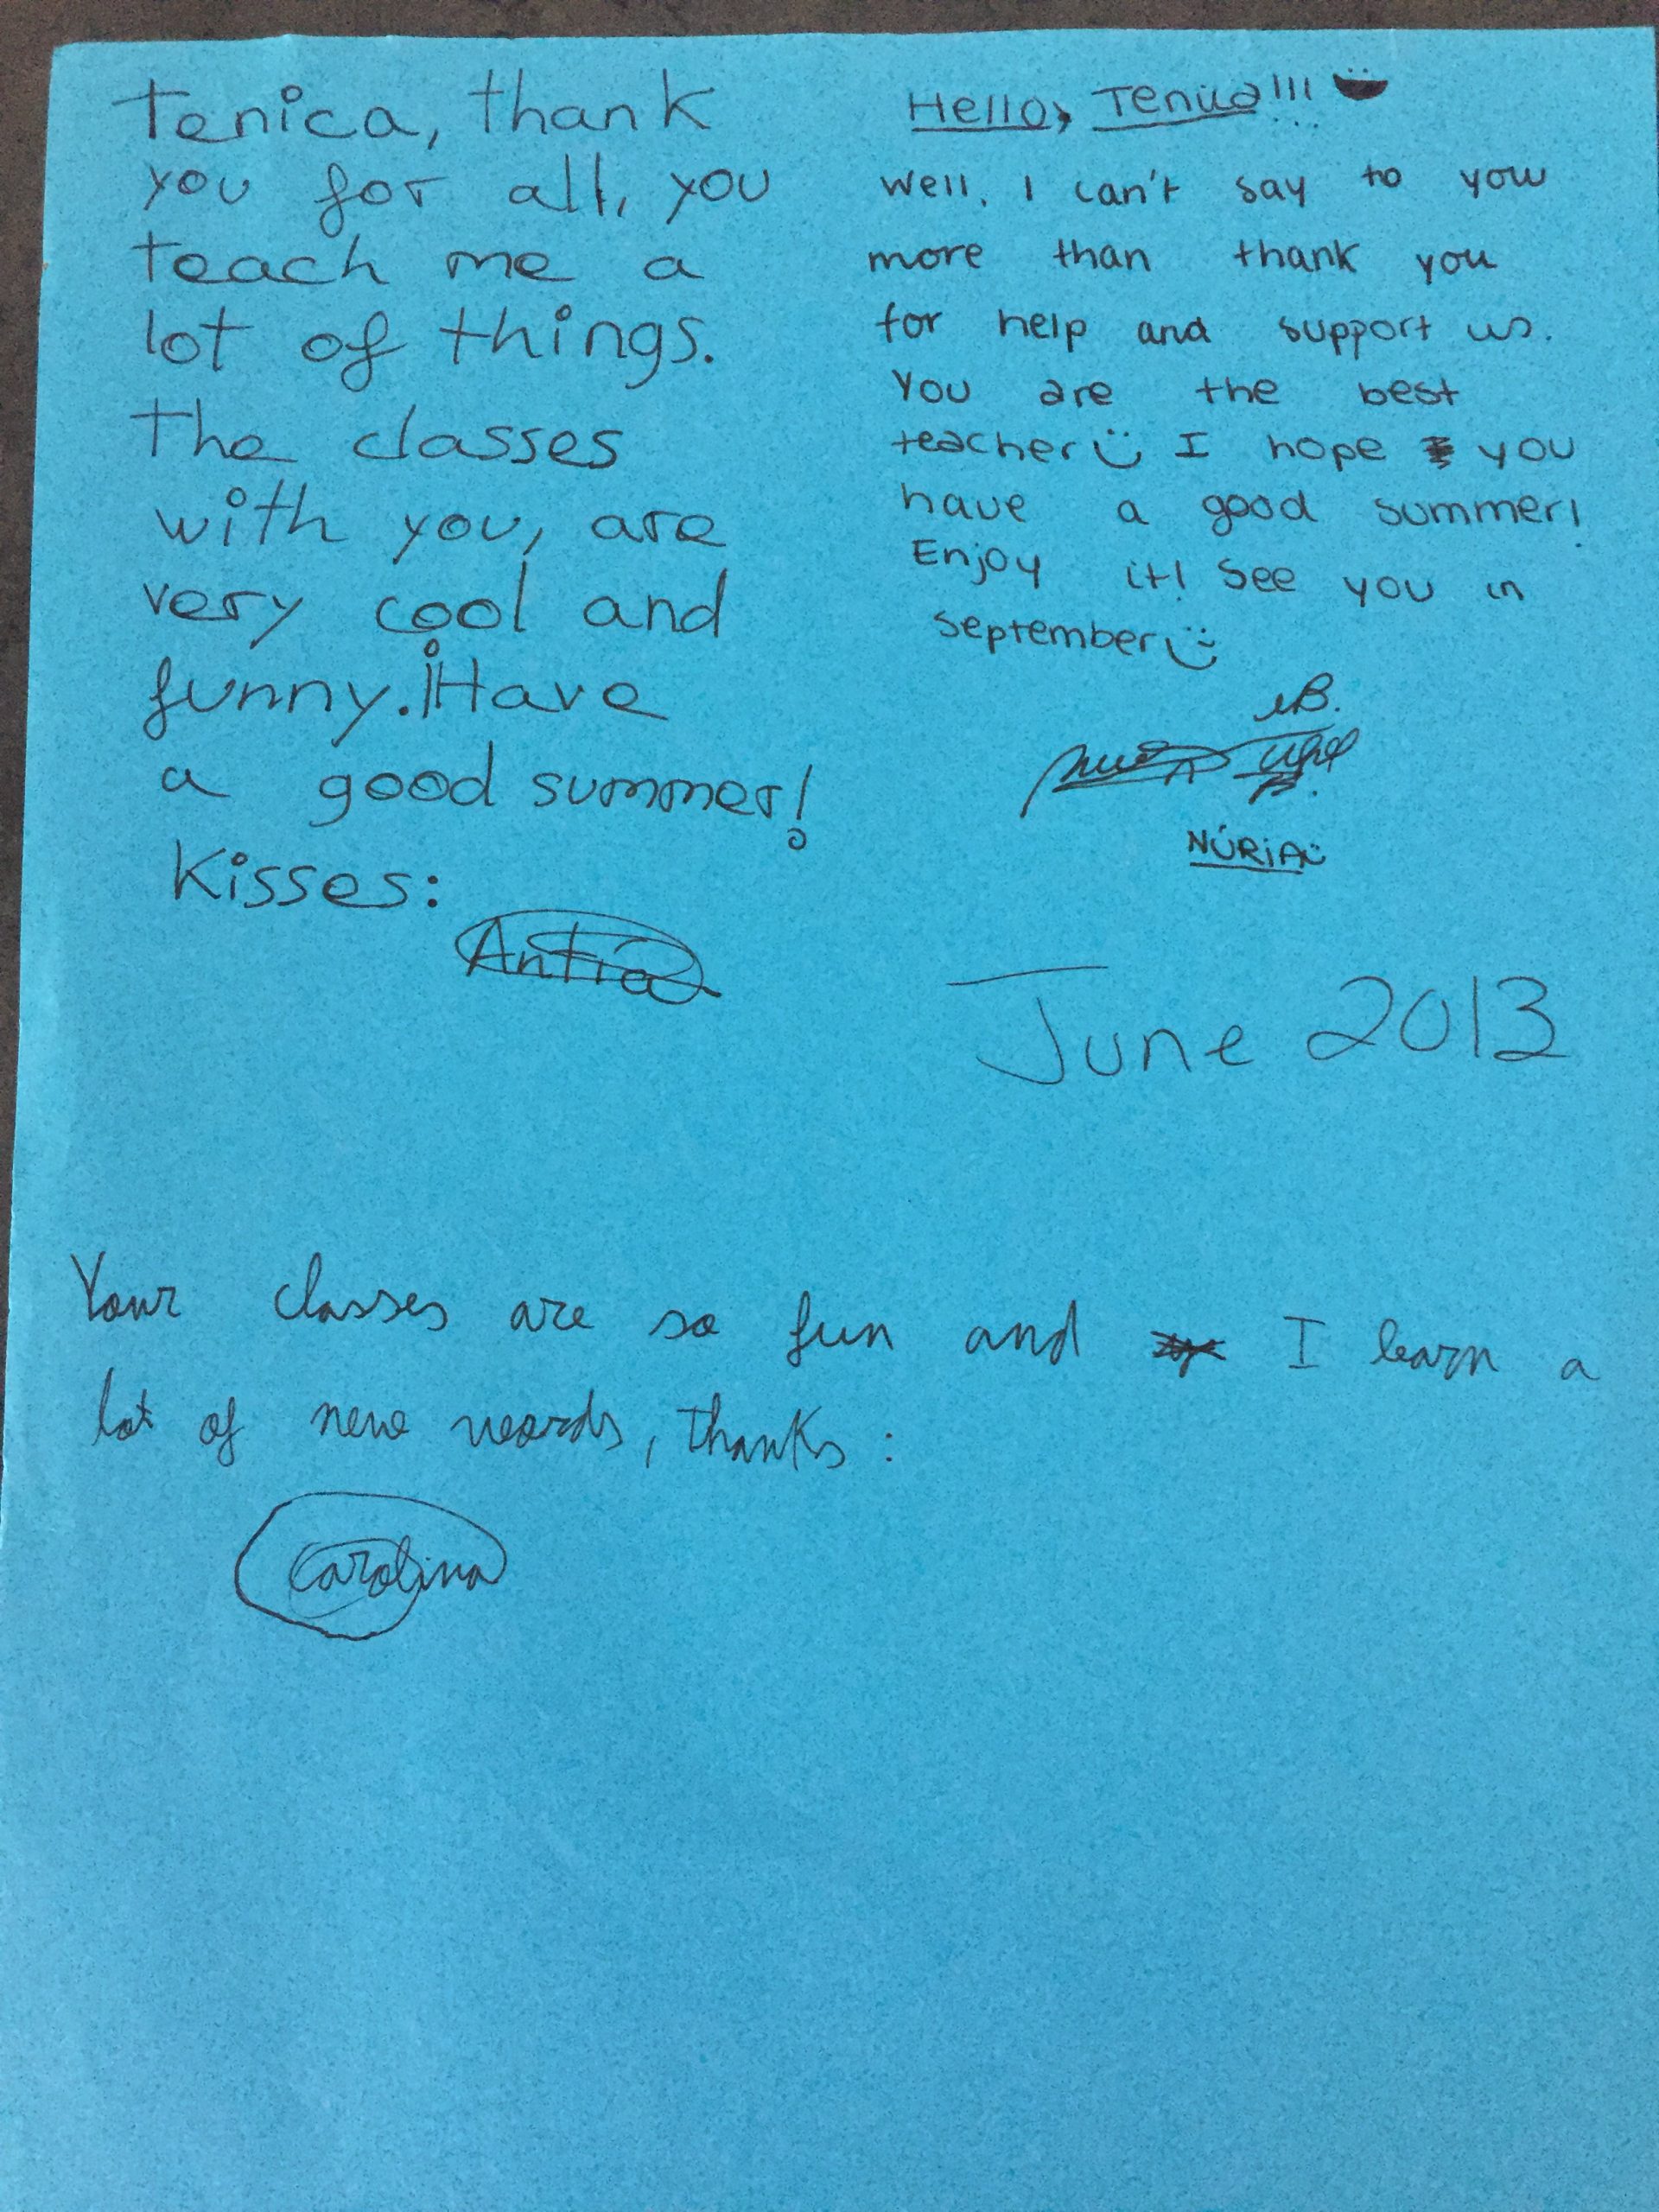 Tenica, thank
you for all, you
teach me a
lot of things.
The classes
with you, are
very cool and
funny. ¡Have
a good summer!
Kisses:
Antía
Hello, Tenica!!!
Well, I can't say to you
more than thank you
for help and support us.
You are the best
teacher :) I hope you
have a good summer!
Enjoy it! See you in
September! :)
NÚRiA :)
June 2013
Your classes are so fun and I learn a
lot of new words, thanks:
Carolina